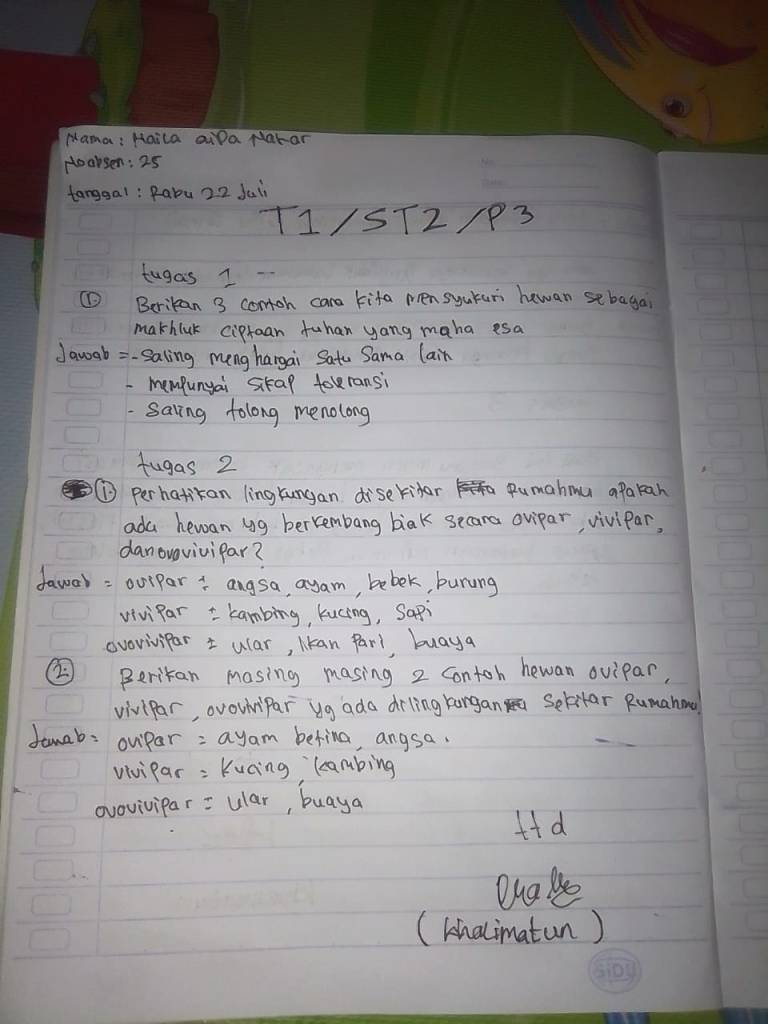 Nama : Naila aida Nahar
No absen : 25
tanggal : Rabu 22 Juli
T1/ST2/P3
tugas 1 --
1. Berikan 3 contoh cara kita mensyukuri hewan sebagai
makhluk ciptaan tuhan yang maha esa
Jawab = - Saling menghargai satu sama lain
- mempunyai sikap toleransi
- Saling tolong menolong
tugas 2
1. Perhatikan lingkungan disekitar Rumahmu apakah
ada hewan yg berkembang biak secara ovipar, vivipar,
dan ovovivipar?
Jawab = ovipar = angsa, ayam, bebek, burung
vivipar = kambing, kucing, Sapi
ovovivipar = ular, ikan Pari, buaya
2. Berikan masing masing 2 contoh hewan ovipar,
vivipar, ovovivipar yg ada dilingkungan sekitar Rumahmu!
Jawab = ovipar = ayam betina, angsa.
vivipar = kucing, kambing
ovovivipar = ular, buaya
ttd
(khalimatun)
SiDU